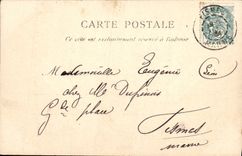 CARTE POSTALE
Ce côté est exclusivement réservé à l'adresse
FISMES
Mademoiselle Eugénie
chez Mlle Dupinois
Gde place
Fismes
Marne